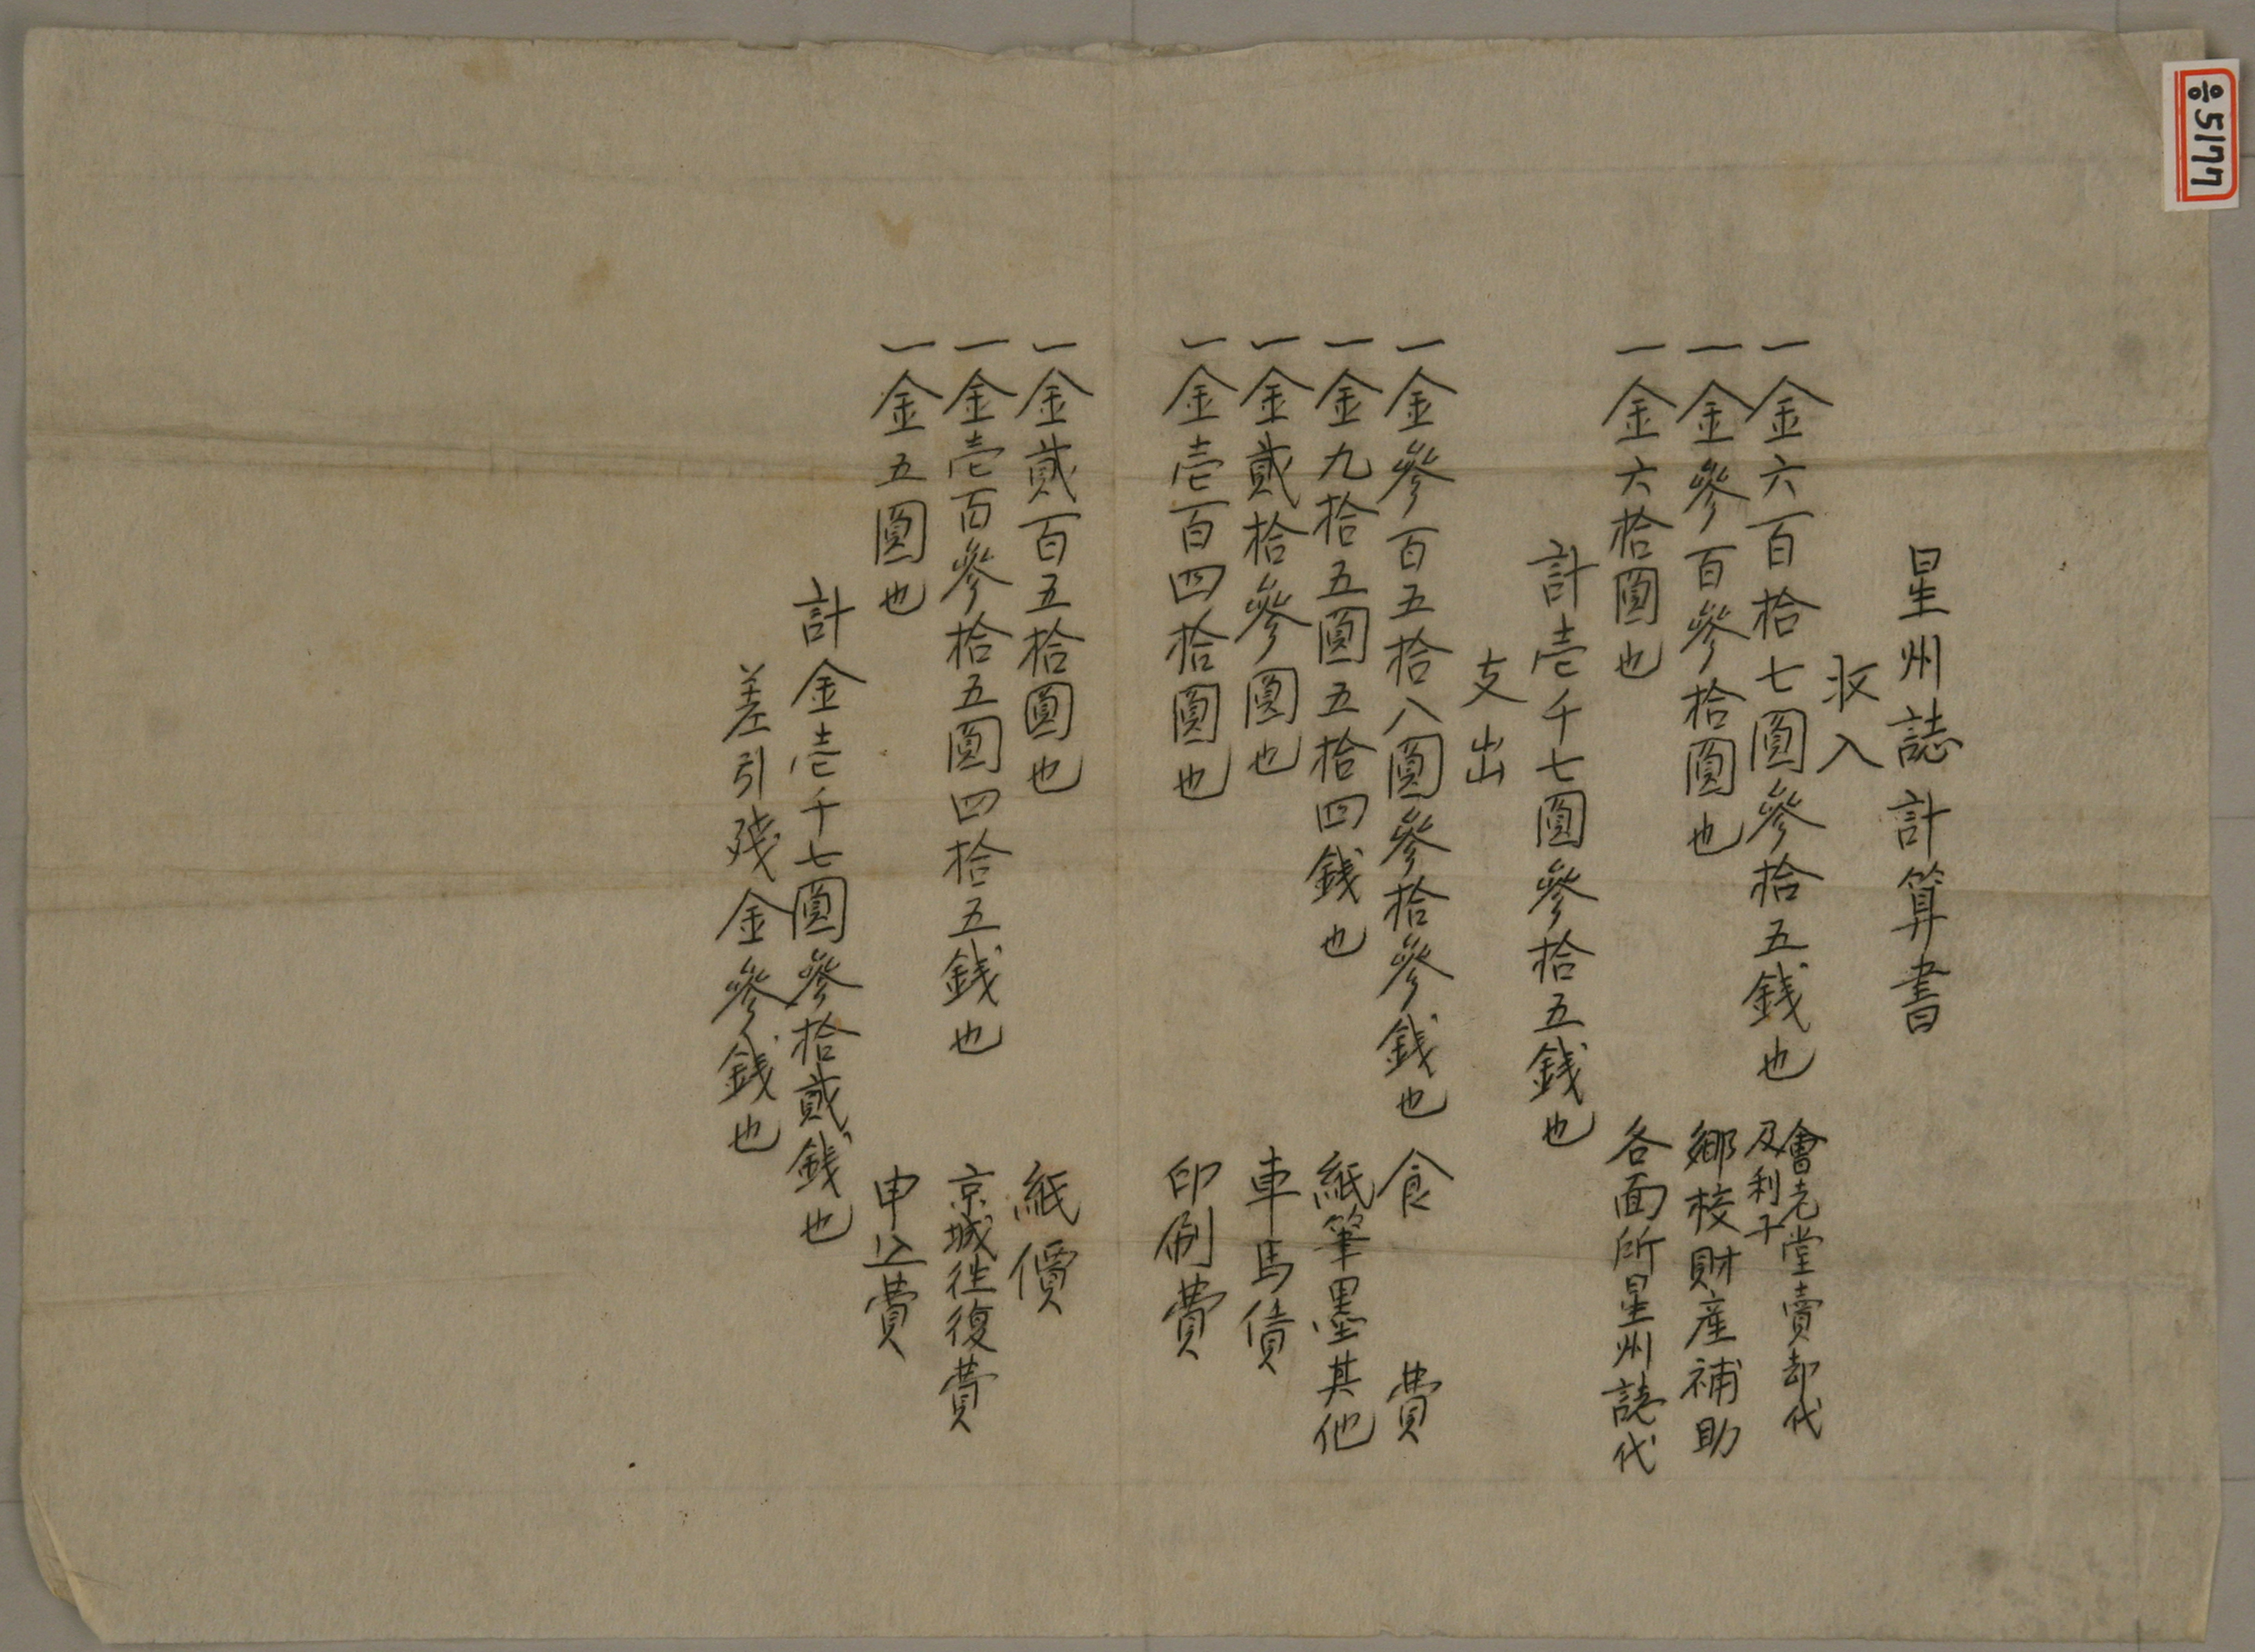 星州誌計算書
收入
一金六百拾七圓參拾五錢也 會老堂賣却代
及利子
一金參百參拾圓也 鄕校財産補助
一金六拾圓也 各面所星州誌代
計壱千七圓參拾五錢也
支出
一金參百五拾八圓參拾參錢也 食費
一金九拾五圓五拾四錢也 紙筆墨其他
一金貳拾參圓也 車馬債
一金壱百四拾圓也 印刷費
一金貳百五拾圓也 紙價
一金壱百參拾五圓四拾五錢也 京城往復費
一金五圓也 申込費
計金壱千七圓參拾貳錢也
差引残金參錢也
응5177